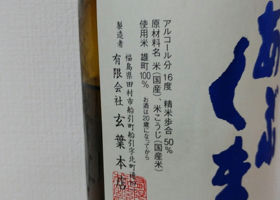 あぶくま
アルコール分 16度 精米歩合 50%
原材料名 米(国産)、米こうじ(国産米)
使用米 雄町100%
お酒は20歳になってから
製造者
福島県田村市船引町船引字北町通
有限会社 玄葉本店